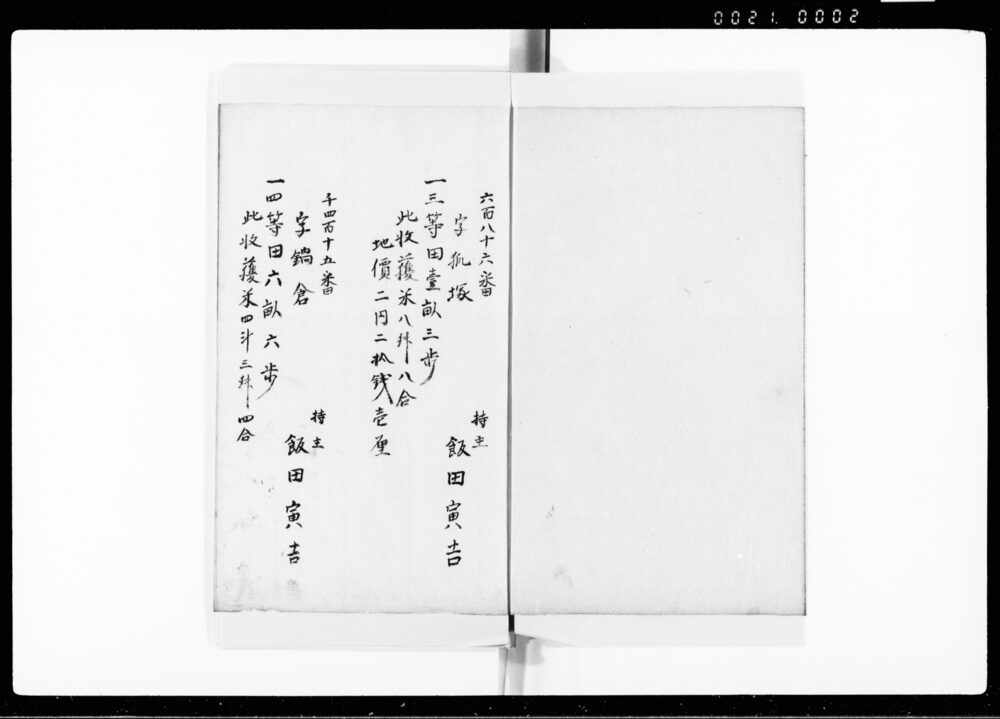 0021. 0002
六百八十六番
字狐塚
持主
飯田寅吉
一三等田壹畝三歩
此收獲米八舛八合
地價二円二拾銭壱厘
千四百十五番
字鍋倉
持主
飯田寅吉
一四等田六畝六歩
此收獲米四斗三舛四合